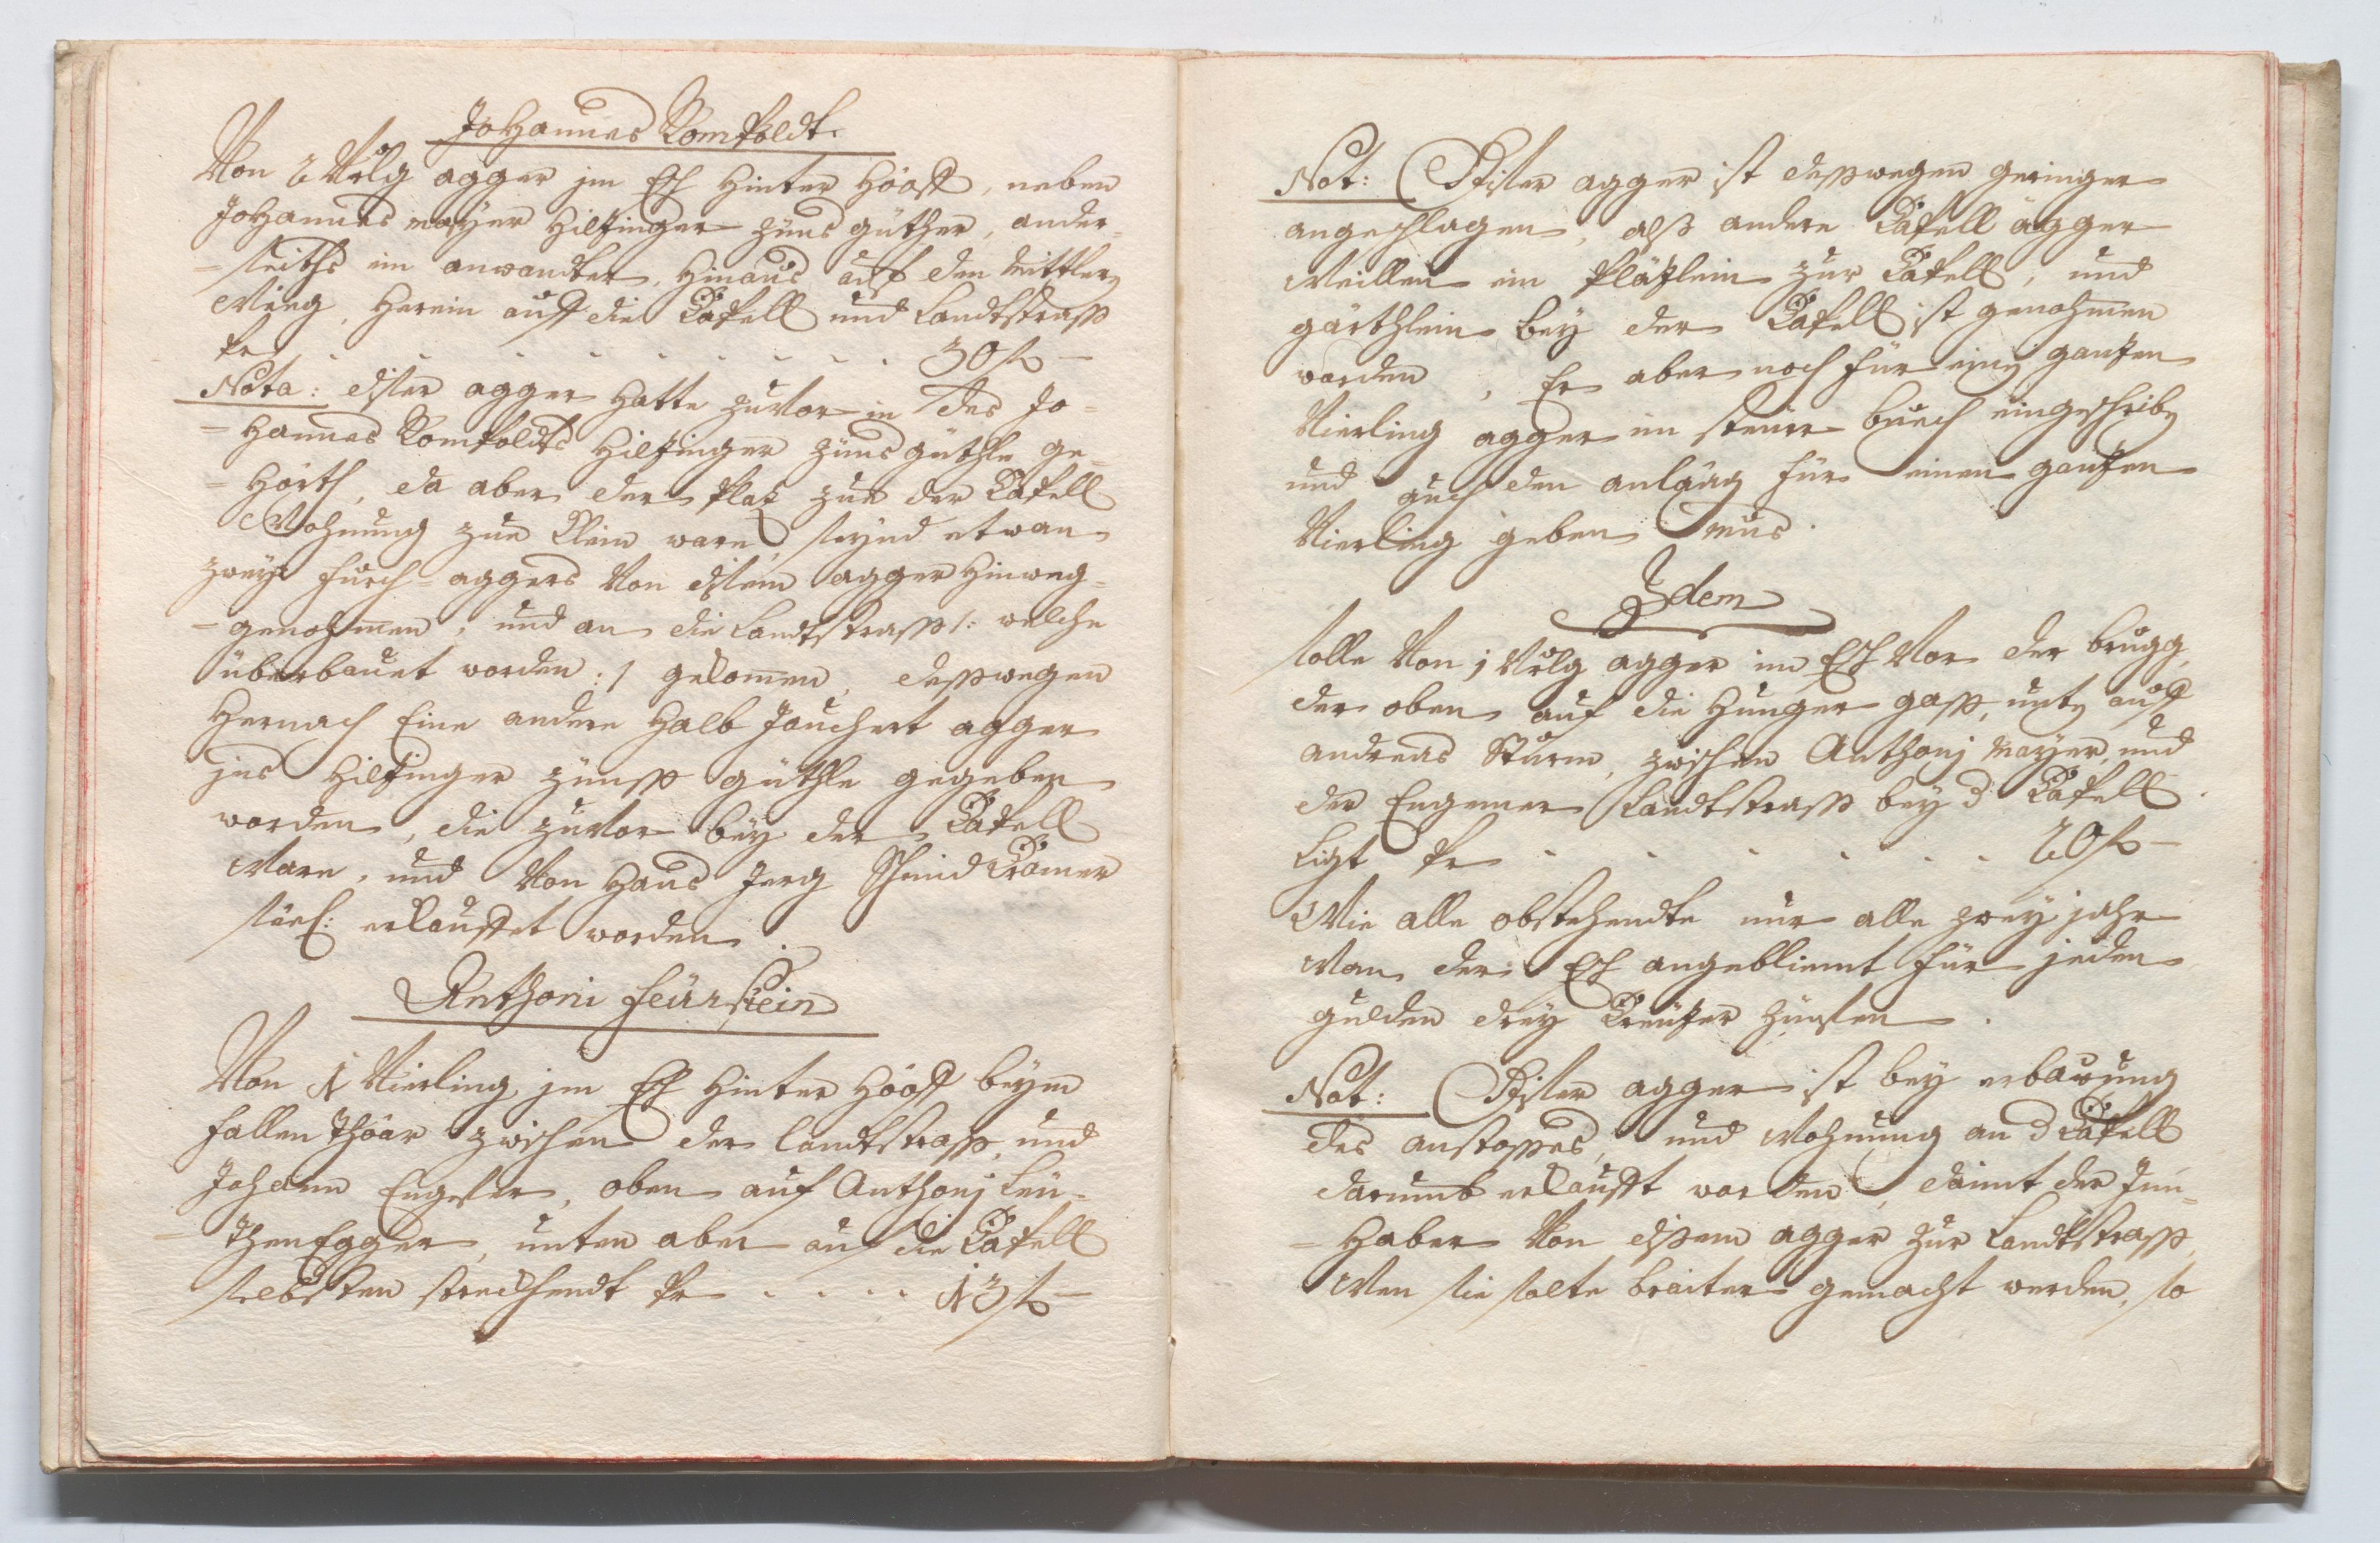 Johannes Rompoldt.
Von 2 Vrlg agger jm Esch hinter Hööff, neben
Johannes mayer Hilzinger zünß güther, ander-
=seiths ein anwandter, hinaus auf den mittleren
Weeg, herein auff die Capell und Landtstrass
pr . . . . . . . . . 30 fl —
Nota: diser agger hatte zuvor in des Jo=
=hannes Rompoldts Hilzinger zünß güthle ge=
=hörth, da aber der plaz zue der Capell
Wohnung zue klein ware, seynd etwan
zwey furch=aggers von disem agger hinweg=
=genohmen, und an die Landtstrass /: welche
überbauet worden :/ gekomen, desswegen
hernach Eine andere halb Jauchert agger
jns Hilzinger zünss güthle gegeben
worden, die zuvor bey der Capell
Ware, und von Hans Jerg Schmid Cramer
seel: erkaufft worden.
Anthoni Feürstein
Von 1 Vierling jm Esch hinter Hööff beym
fallen Thöar zwischen der landtstrass, und
Johann Engesser, oben auf Anthonj Leü=
=thenEgger, unten aber auf die Capell
selbsten streckhendt pr . . . . 13 fl —
Not: Diser agger ist desswegen geringer
angeschlagen, alss andere Capell ägger
Weillen ein pläzlein zur Capell, und
gärthlein bey der Capell ist genohmen
worden, Er aber noch für einen ganzen
Vierling agger im steür buech eingeschriben
und auch den anlaag für einen ganzen
Vierling geben mus.
Idem
solle von 1 Vrlg agger im Esch vor der brugg,
der oben auf die Hunger gass, unten auff
andreas Sturm, zwischen Anthonj Mayer, und
der Engemer Landtstrass bey d Capell
Ligt pr . . . . . . . 20 fl —
Wie alle obstehendte nur alle zwey jahr
Wan der Esch angebliemt für jeden
gulden drey Creüzer zünsen.
Not: Diser agger ist bey erbauung
des anstosses, und Wohnung an d Capell
darumb erkaufft worden, damit der Jnn=
=haber von disem agger zur Landtstrass,
Wen sie solte breiter gemacht werden, so